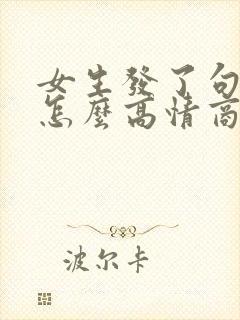 女生發了句
怎麼高情商
波尔卡